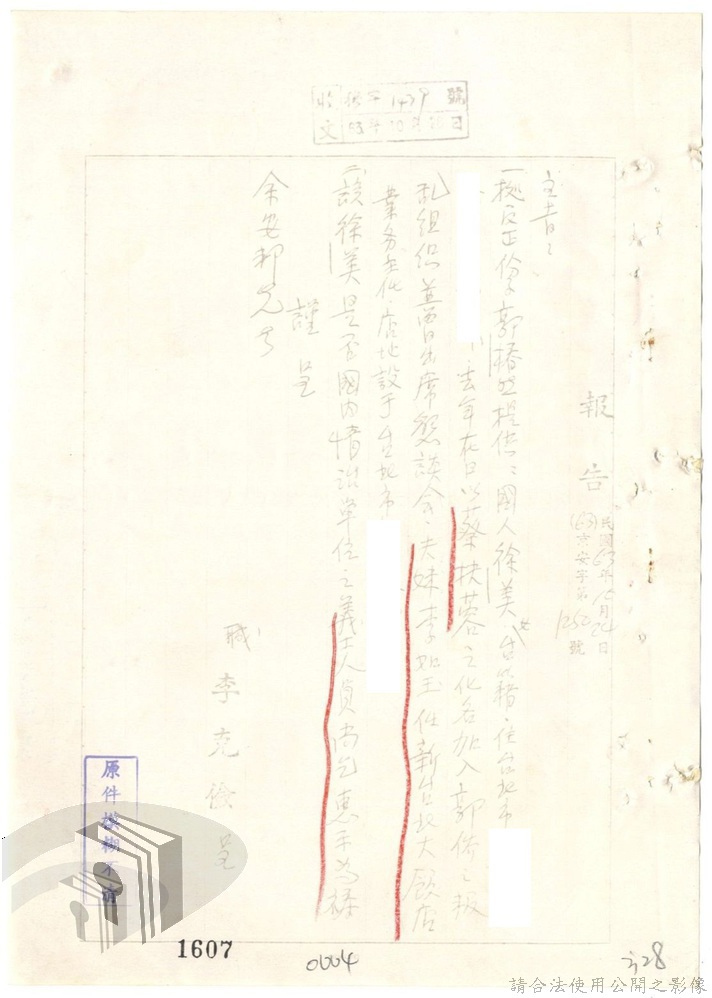 收文 字 1439 號
63年10月26日
報告
民國63年10月24日
(63)京安字第1252號
主旨:
一據反正份子郭 提供:國人徐美(女)台北籍,住台北市
去年在日以蔡扶蓉之化名加入郭偽之叛
乱組织並曾出席懇談会,夫妹李 玉任新台北大飯店
業务主任,店地設于台北市
二該徐美是否國內情治單位之義工人員尚乞惠示為禱
謹呈
余安邦先生
職 李克 呈
原件模糊不清
1607
0004
328
請合法使用公開之影像